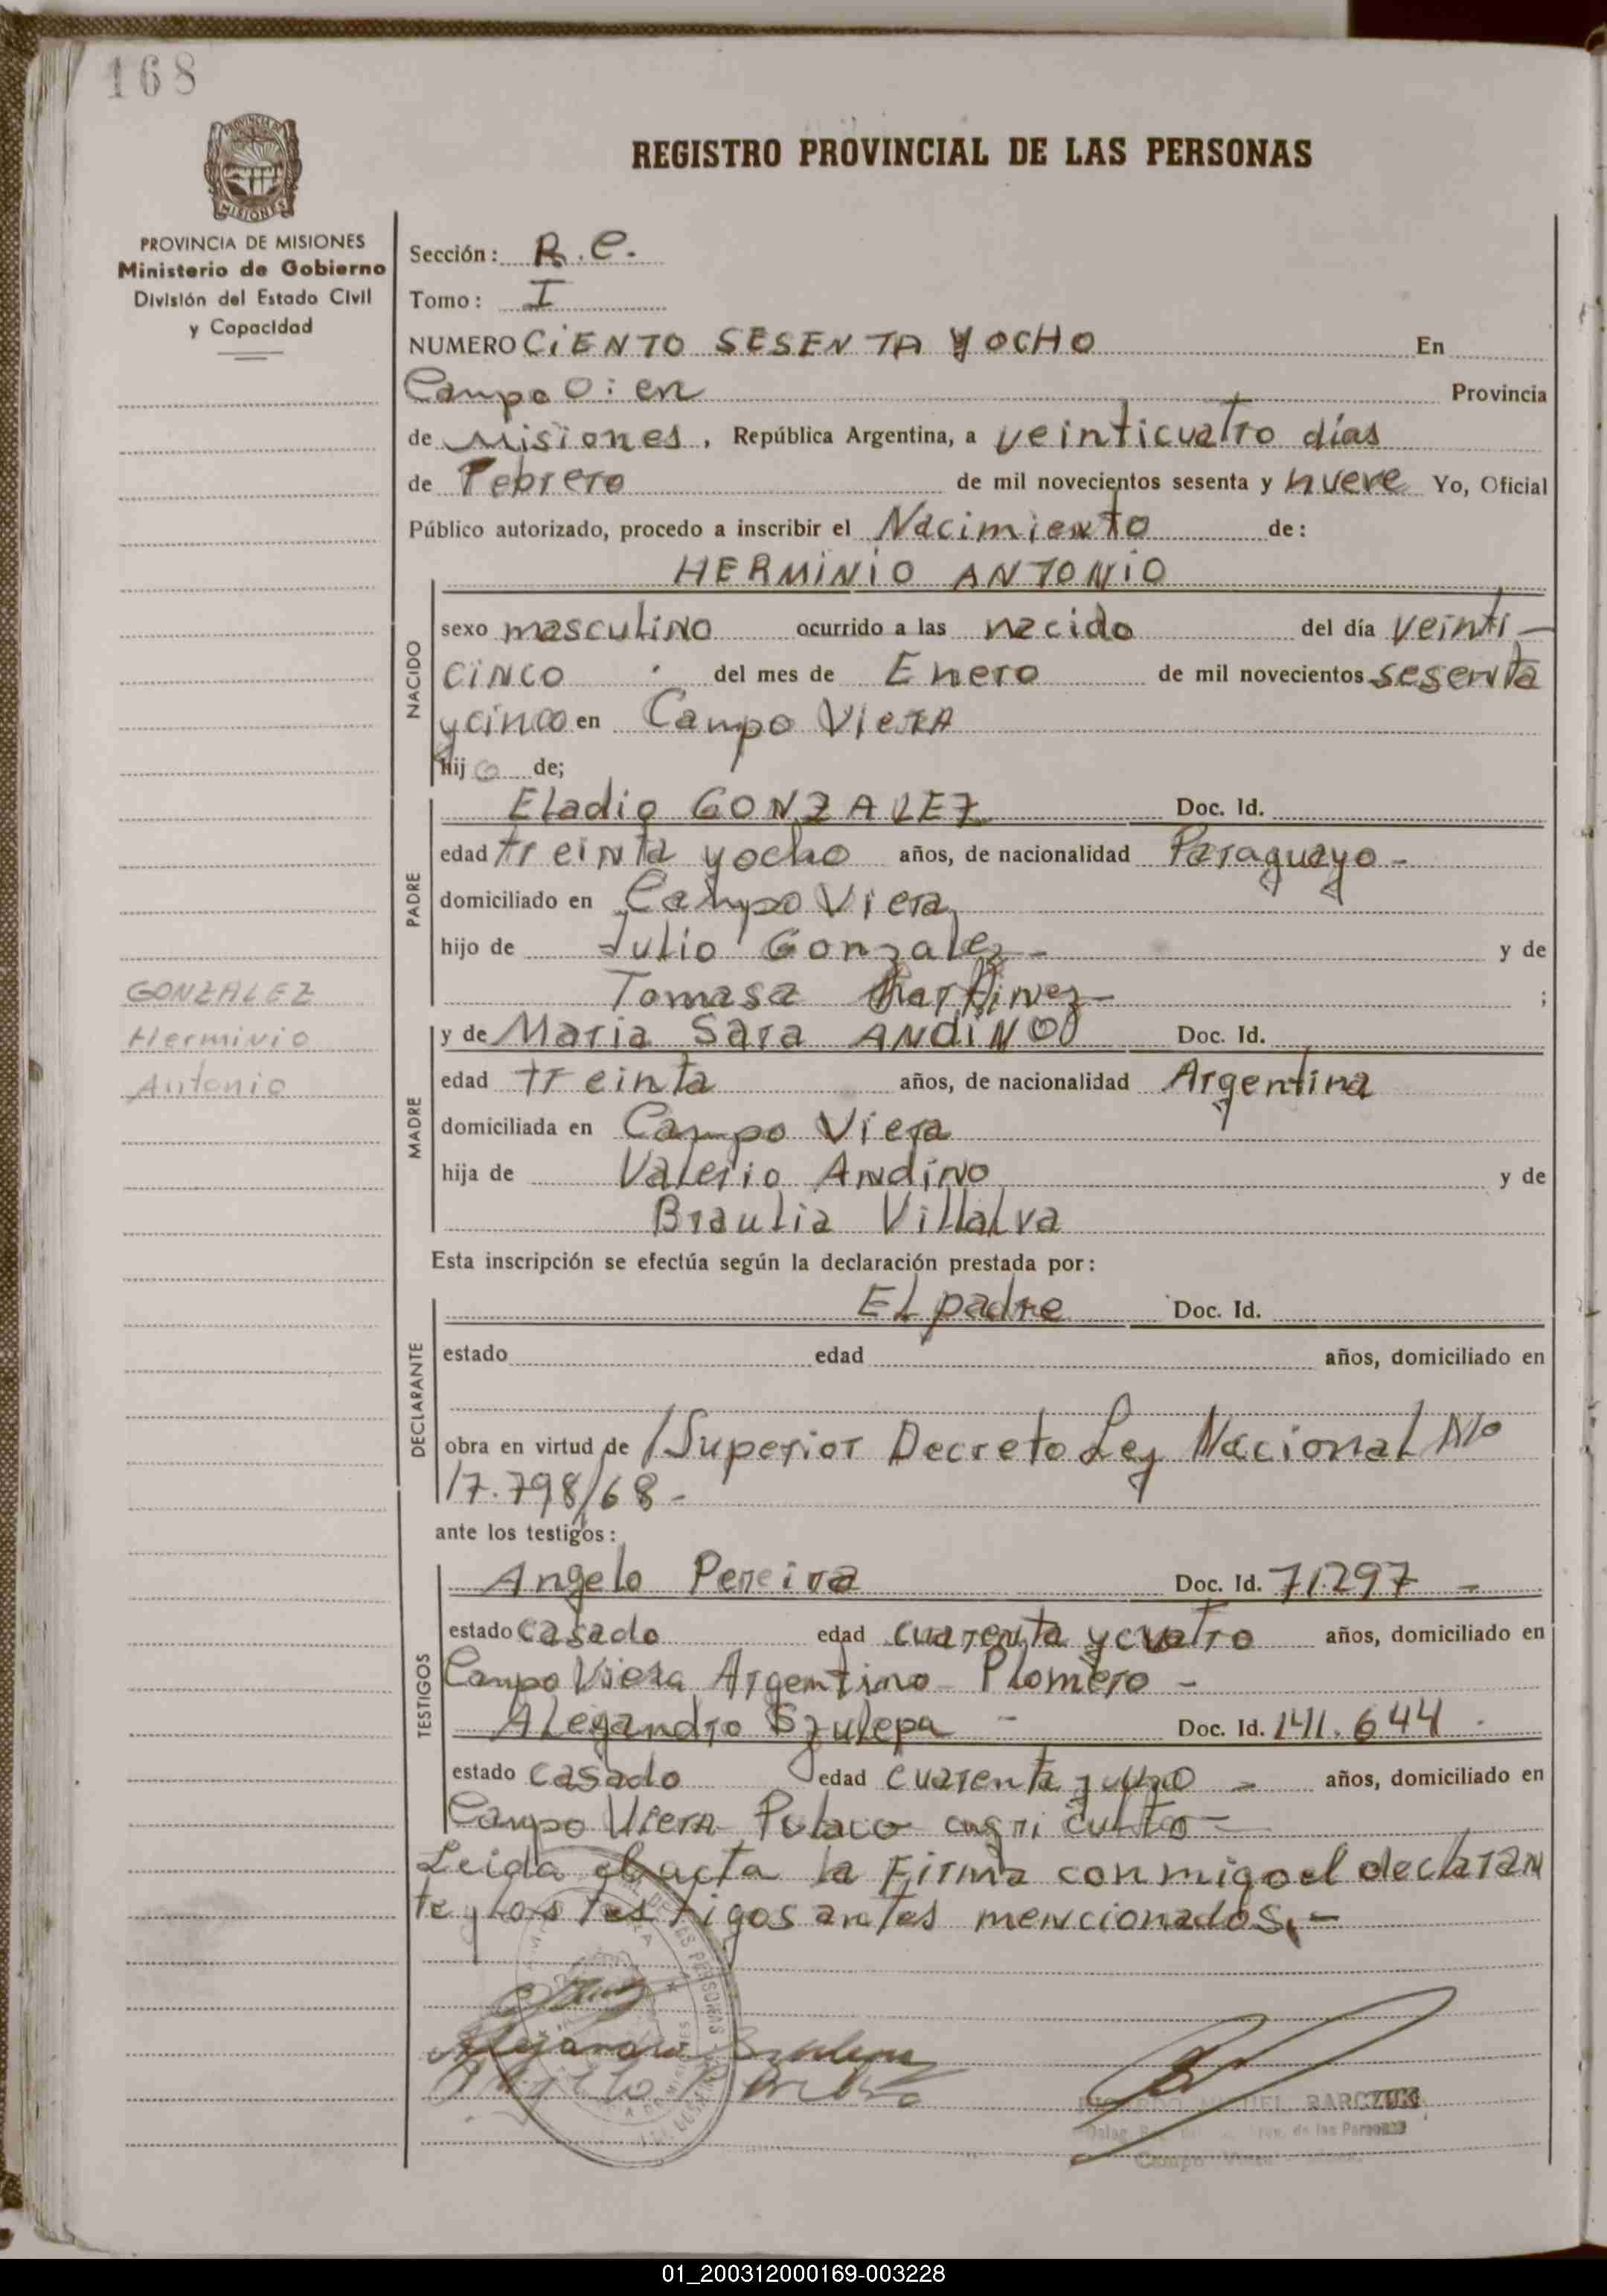 168
PROVINCIA DE MISIONES
Ministerio de Gobierno
División del Estado Civil
y Capacidad
REGISTRO PROVINCIAL DE LAS PERSONAS
Sección: R.C.
Tomo: I
NUMERO CiENTO SESENTA Y OCHO En
Campo Provincia
de Misiones, República Argentina, a veinticuatro días
de Febrero de mil novecientos sesenta y nueve Yo, Oficial
Público autorizado, procedo a inscribir el Nacimiento de:
HERMINIO ANTONIO
NACIDO
sexo masculino ocurrido a las nacido del día veinti-
cinco del mes de Enero de mil novecientos sesenta
y cinco en Campo Viera
hijo de;
PADRE
Eladio GONZALEZ Doc. Id.
edad treinta y ocho años, de nacionalidad Paraguayo-
domiciliado en Campo Viera
hijo de Julio Gonzalez- y de
Tomasa Martinez- ;
GONZALEZ
Herminio
Antonio
MADRE
y de Maria Sara ANDINO Doc. Id.
edad treinta años, de nacionalidad Argentina
domiciliada en Campo Viera
hija de Valerio Andino y de
Braulia Villalva
Esta inscripción se efectúa según la declaración prestada por:
DECLARANTE
El padre Doc. Id.
estado edad años, domiciliado en
obra en virtud de /Superior Decreto Ley Nacional No
17.798/68-
ante los testigos:
TESTIGOS
Angelo Pereira Doc. Id. 71.297 -
estado casado edad cuarenta y cuatro años, domiciliado en
Campo Viera Argentino Plomero -
Alejandro Szulepa - Doc. Id. 141.644
estado casado edad cuarenta y uno - años, domiciliado en
Campo Viera Polaco
Leida el acta la Firma conmigo el declaran
te y los testigos antes mencionados.-
Alejandro Szulepa
BARCZUK
de las Personas
01_200312000169-003228